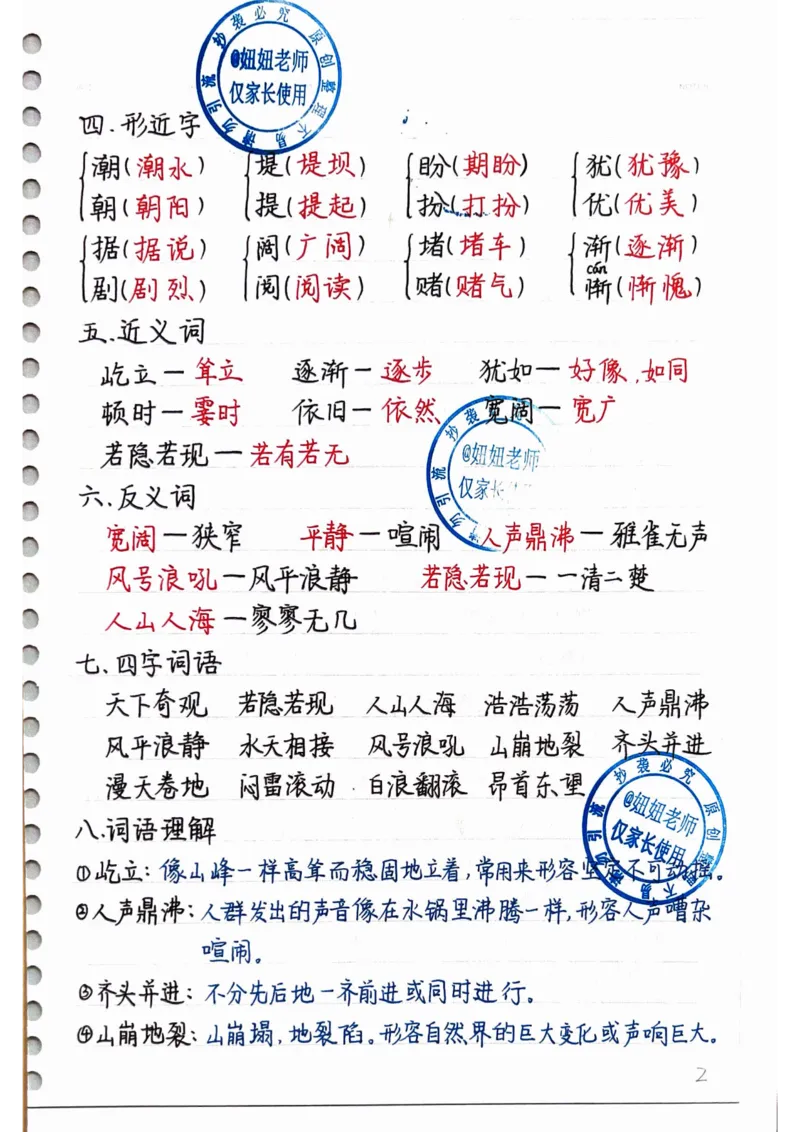 抄袭必究 原创整理不易 请勿引流
@妞妞老师
仅家长使用
四.形近字
潮(潮水) 堤(堤坝) 盼(期盼) 犹(犹豫)
朝(朝阳) 提(提起) 扮(打扮) 优(优美)
据(据说) 阔(广阔) 堵(堵车) 渐(逐渐)
cán
剧(剧烈) 阅(阅读) 赌(赌气) 惭(惭愧)
五.近义词
屹立—耸立 逐渐—逐步 犹如—好像,如同
顿时—霎时 依旧—依然 宽阔—宽广
若隐若现—若有若无
抄袭
@妞妞老师
仅家长使
勿引流
六.反义词
宽阔—狭窄 平静—喧闹 人声鼎沸—雅雀无声
风号浪吼—风平浪静 若隐若现—一清二楚
人山人海—寥寥无几
七.四字词语
天下奇观 若隐若现 人山人海 浩浩荡荡 人声鼎沸
风平浪静 水天相接 风号浪吼 山崩地裂 齐头并进
漫天卷地 闷雷滚动 白浪翻滚 昂首东望
抄袭必究 原创整理不易 请勿引流
@妞妞老师
仅家长使用
八.词语理解
①屹立:像山峰一样高耸而稳固地立着,常用来形容坚定不可动摇。
②人声鼎沸:人群发出的声音像在水锅里沸腾一样,形容人声嘈杂
喧闹。
③齐头并进:不分先后地一齐前进或同时进行。
④山崩地裂:山崩塌,地裂陷。形容自然界的巨大变化或声响巨大。
2